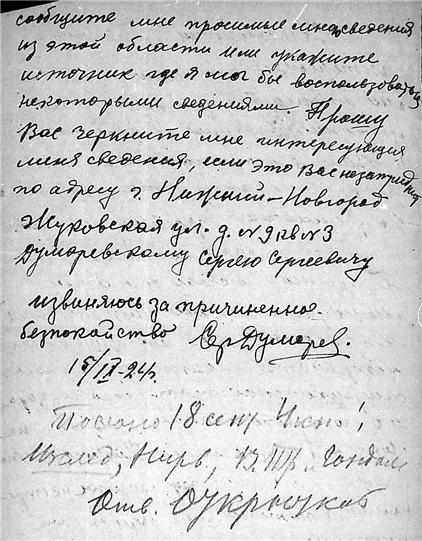 сообщите мне просимые мной сведения
из этой области или укажите
источник где я мог бы воспользоваться
некоторыми сведениями. Прошу
Вас черкните мне интересующия
меня сведения, если это Вас незатруднит
по адресу г. Нижний-Новгород
Жуковская ул. д. №9 кв №3
Думаревскому Сергею Сергеевичу
извиняюсь за причиненное
безпокайство Сер. Думарев.
15/IX-24г.
18 сент
Отв.